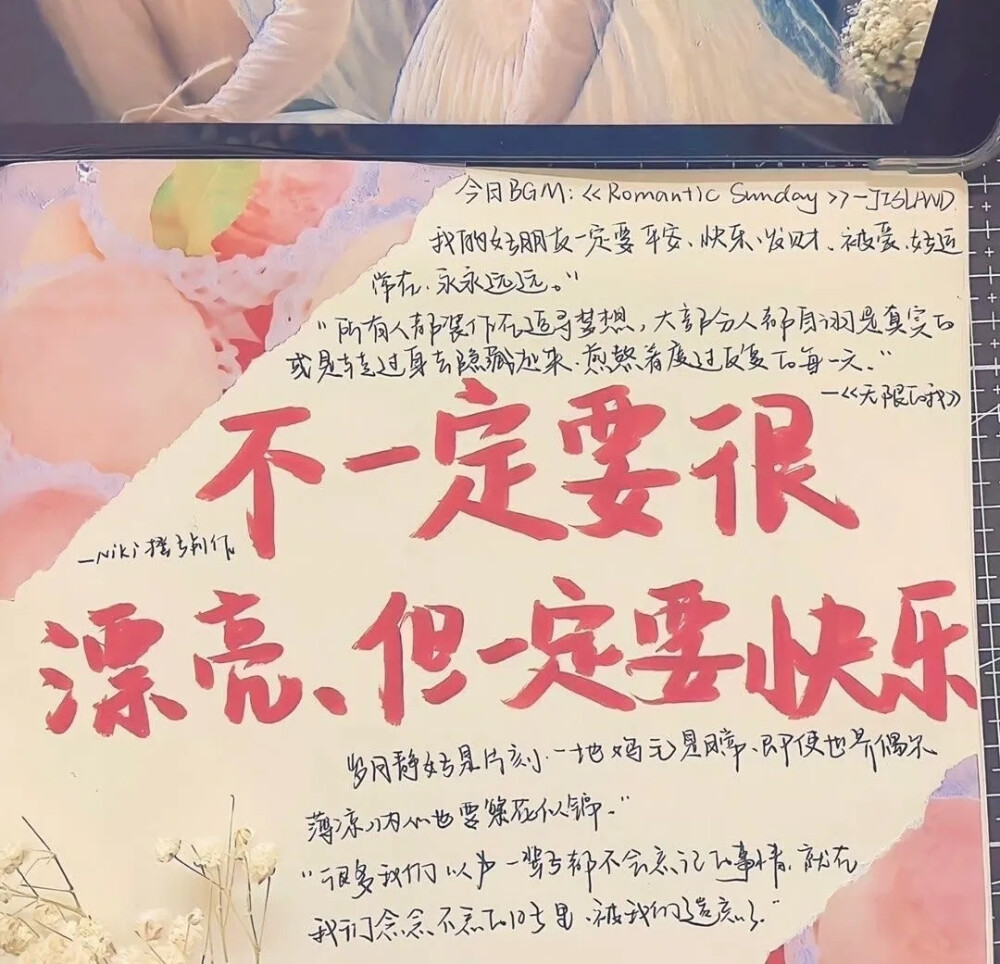 今日BGM:《Romantic Sunday》—JISLAND
我的好朋友一定要平安、快乐、发财、被爱、好运
常在、永永远远。"
"所有人都装作不追寻梦想,大部分人都自诩是真实的
或是转过身去隐藏起来、煎熬着度过反复的每一天。"
—《无限的我》
不一定要很
—Niki
漂亮、但一定要快乐
岁月静好是片刻、一地鸡毛是日常、即使世界偶尔
薄凉、内心也要繁花似锦。"
"很多我们以为一辈子都不会忘记的事情、就在
我们念念不忘的日子里、被我们遗忘了。"